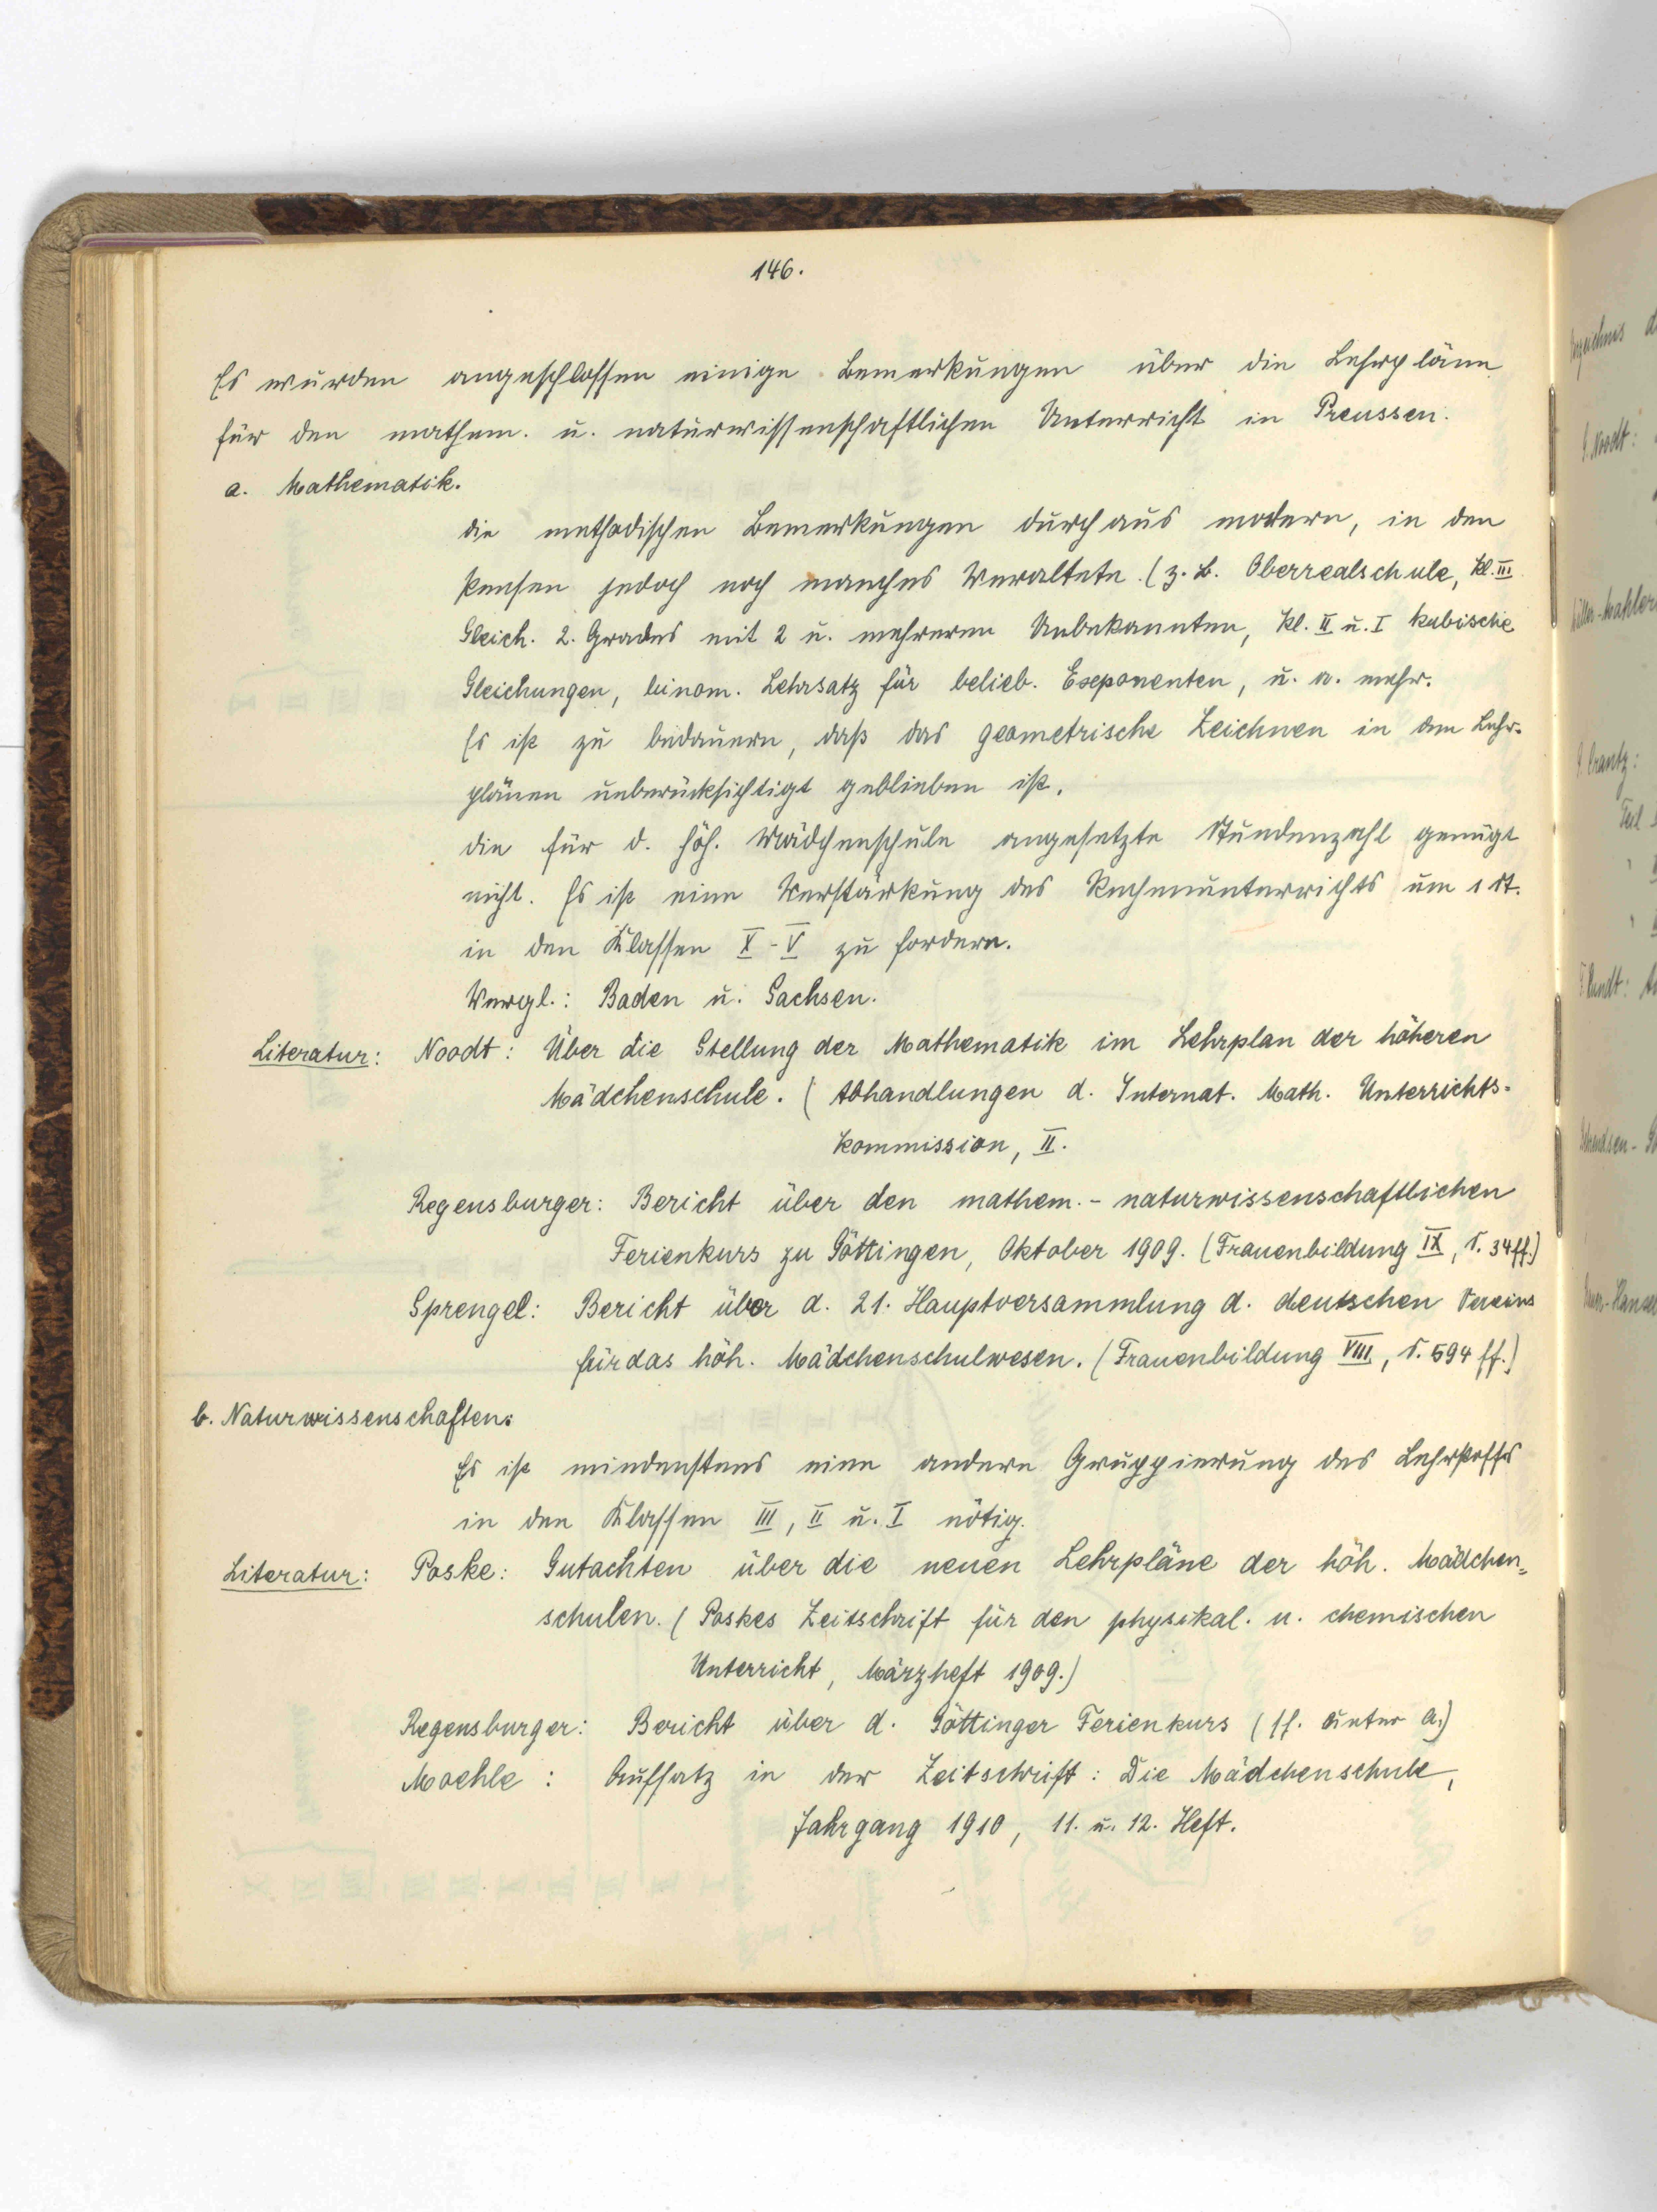 146.
Es wurden angeschlossen einige Bemerkungen über die Lehrpläne
für den mathem. u. naturwissenschaftlichen Unterricht in Preussen.
a. Mathematik.
die methodischen Bemerkungen durchaus modern, in den
Pensen jedoch noch manches Veraltete. (z. B. Oberrealschule, Kl. III
Gleich. 2. Grades mit 2 u. mehreren Unbekannten, Kl. II u. I kubische
Gleichungen, binom. Lehrsatz für belieb. Exponenten, u. a. mehr.
Es ist zu bedauern, daß das geometrische Zeichnen in den Lehr-
plänen unberücksichtigt geblieben ist.
die für d. höh. Mädchenschule angesetzte Stundenzahl genügt
nicht. Es ist eine Verstärkung des Rechenunterrichts um 1 St.
in den Klassen X - V zu fordern.
Vergl.: Baden u. Sachsen.
Literatur: Noodt: Über die Stellung der Mathematik im Lehrplan der höheren
Mädchenschule. (Abhandlungen d. Internat. Math. Unterrichts-
kommission, II.
Regensburger: Bericht über den mathem.-naturwissenschaftlichen
Ferienkurs zu Göttingen, Oktober 1909. (Frauenbildung IX, S. 34 ff.)
Sprengel: Bericht über d. 21. Hauptversammlung d. deutschen Vereins
für das höh. Mädchenschulwesen. (Frauenbildung VIII, S. 594 ff.)
b. Naturwissenschaften.
Es ist mindenstens eine andere Gruppierung des Lehrstoffs
in den Klassen III, II u. I nötig.
Literatur: Poske: Gutachten über die neuen Lehrpläne der höh. Mädchen-
schulen. (Poskes Zeitschrift für den physikal. u. chemischen
Unterricht, Märzheft 1909.)
Regensburger: Bericht über d. Göttinger Ferienkurs (ff. unter a.)
Moehle: Aufsatz in der Zeitschrift: Die Mädchenschule,
Jahrgang 1910, 11. u. 12. Heft.
Noodt:
Crantz: